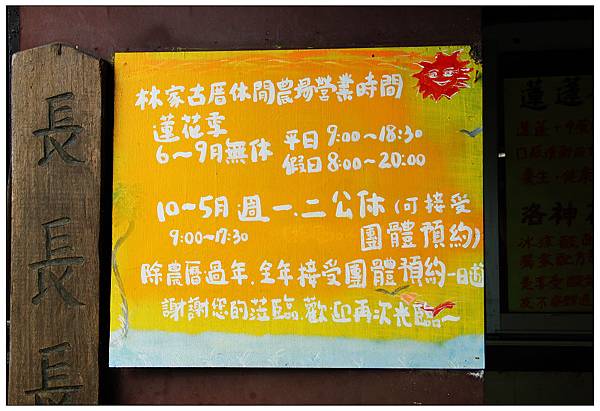 長
長
長
林家古厝休閒農場營業時間
蓮花季
6~9月無休 平日 9:00~18:30
假日 8:00~20:00
10~5月 週一.二公休 (可接受
9:00~17:30 團體預約)
除農曆過年.全年接受團體預約一日遊
謝謝您的蒞臨.歡迎再次光臨~
洛神